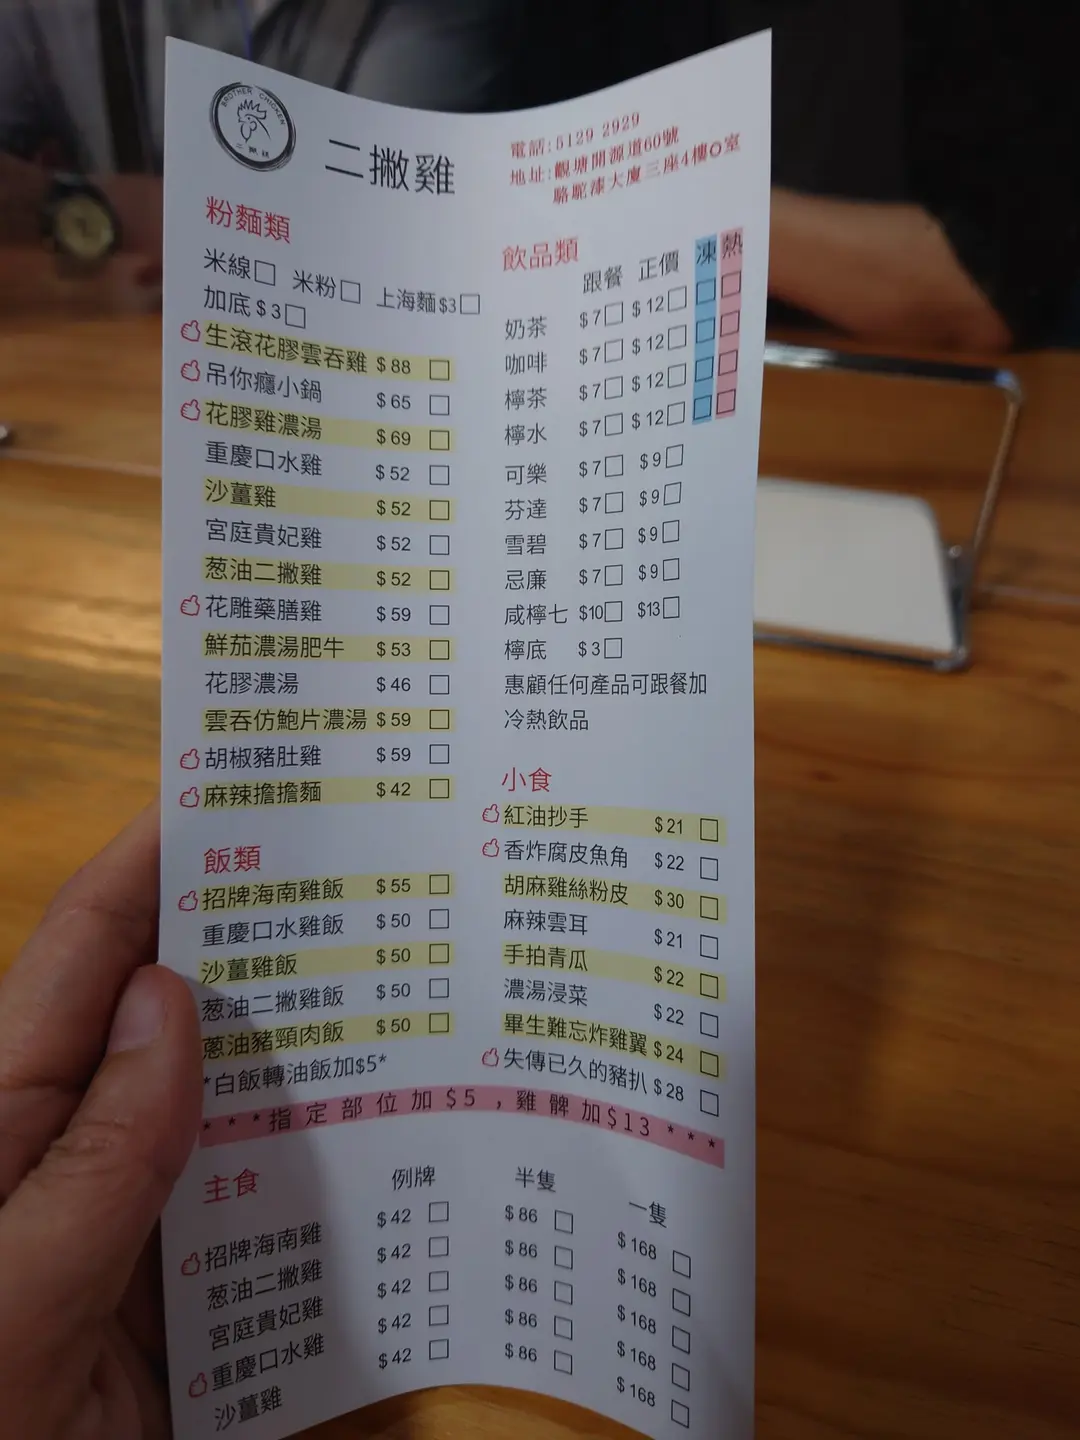 BROTHER CHICKEN
二撇雞
二撇雞
電話:5129 2929
地址:觀塘開源道60號
駱駝漆大廈三座4樓O室
粉麵類
米線□ 米粉□ 上海麵$3□
加底$3□
生滾花膠雲吞雞 $88 □
吊你癮小鍋 $65 □
花膠雞濃湯 $69 □
重慶口水雞 $52 □
沙薑雞 $52 □
宮庭貴妃雞 $52 □
葱油二撇雞 $52 □
花雕藥膳雞 $59 □
鮮茄濃湯肥牛 $53 □
花膠濃湯 $46 □
雲吞仿鮑片濃湯 $59 □
胡椒豬肚雞 $59 □
麻辣擔擔麵 $42 □
飯類
招牌海南雞飯 $55 □
重慶口水雞飯 $50 □
沙薑雞飯 $50 □
葱油二撇雞飯 $50 □
蔥油豬頸肉飯 $50 □
*白飯轉油飯加$5*
飲品類
跟餐 正價 凍 熱
奶茶 $7□ $12□ □ □
咖啡 $7□ $12□ □ □
檸茶 $7□ $12□ □ □
檸水 $7□ $12□ □ □
可樂 $7□ $9□
芬達 $7□ $9□
雪碧 $7□ $9□
忌廉 $7□ $9□
咸檸七 $10□ $13□
檸底 $3□
惠顧任何產品可跟餐加
冷熱飲品
小食
紅油抄手 $21 □
香炸腐皮魚角 $22 □
胡麻雞絲粉皮 $30 □
麻辣雲耳 $21 □
手拍青瓜 $22 □
濃湯浸菜 $22 □
畢生難忘炸雞翼 $24 □
失傳已久的豬扒 $28 □
***指定部位加$5,雞髀加$13***
主食 例牌 半隻 一隻
招牌海南雞 $42 □ $86 □ $168 □
葱油二撇雞 $42 □ $86 □ $168 □
宮庭貴妃雞 $42 □ $86 □ $168 □
重慶口水雞 $42 □ $86 □ $168 □
沙薑雞 $42 □ $86 □ $168 □